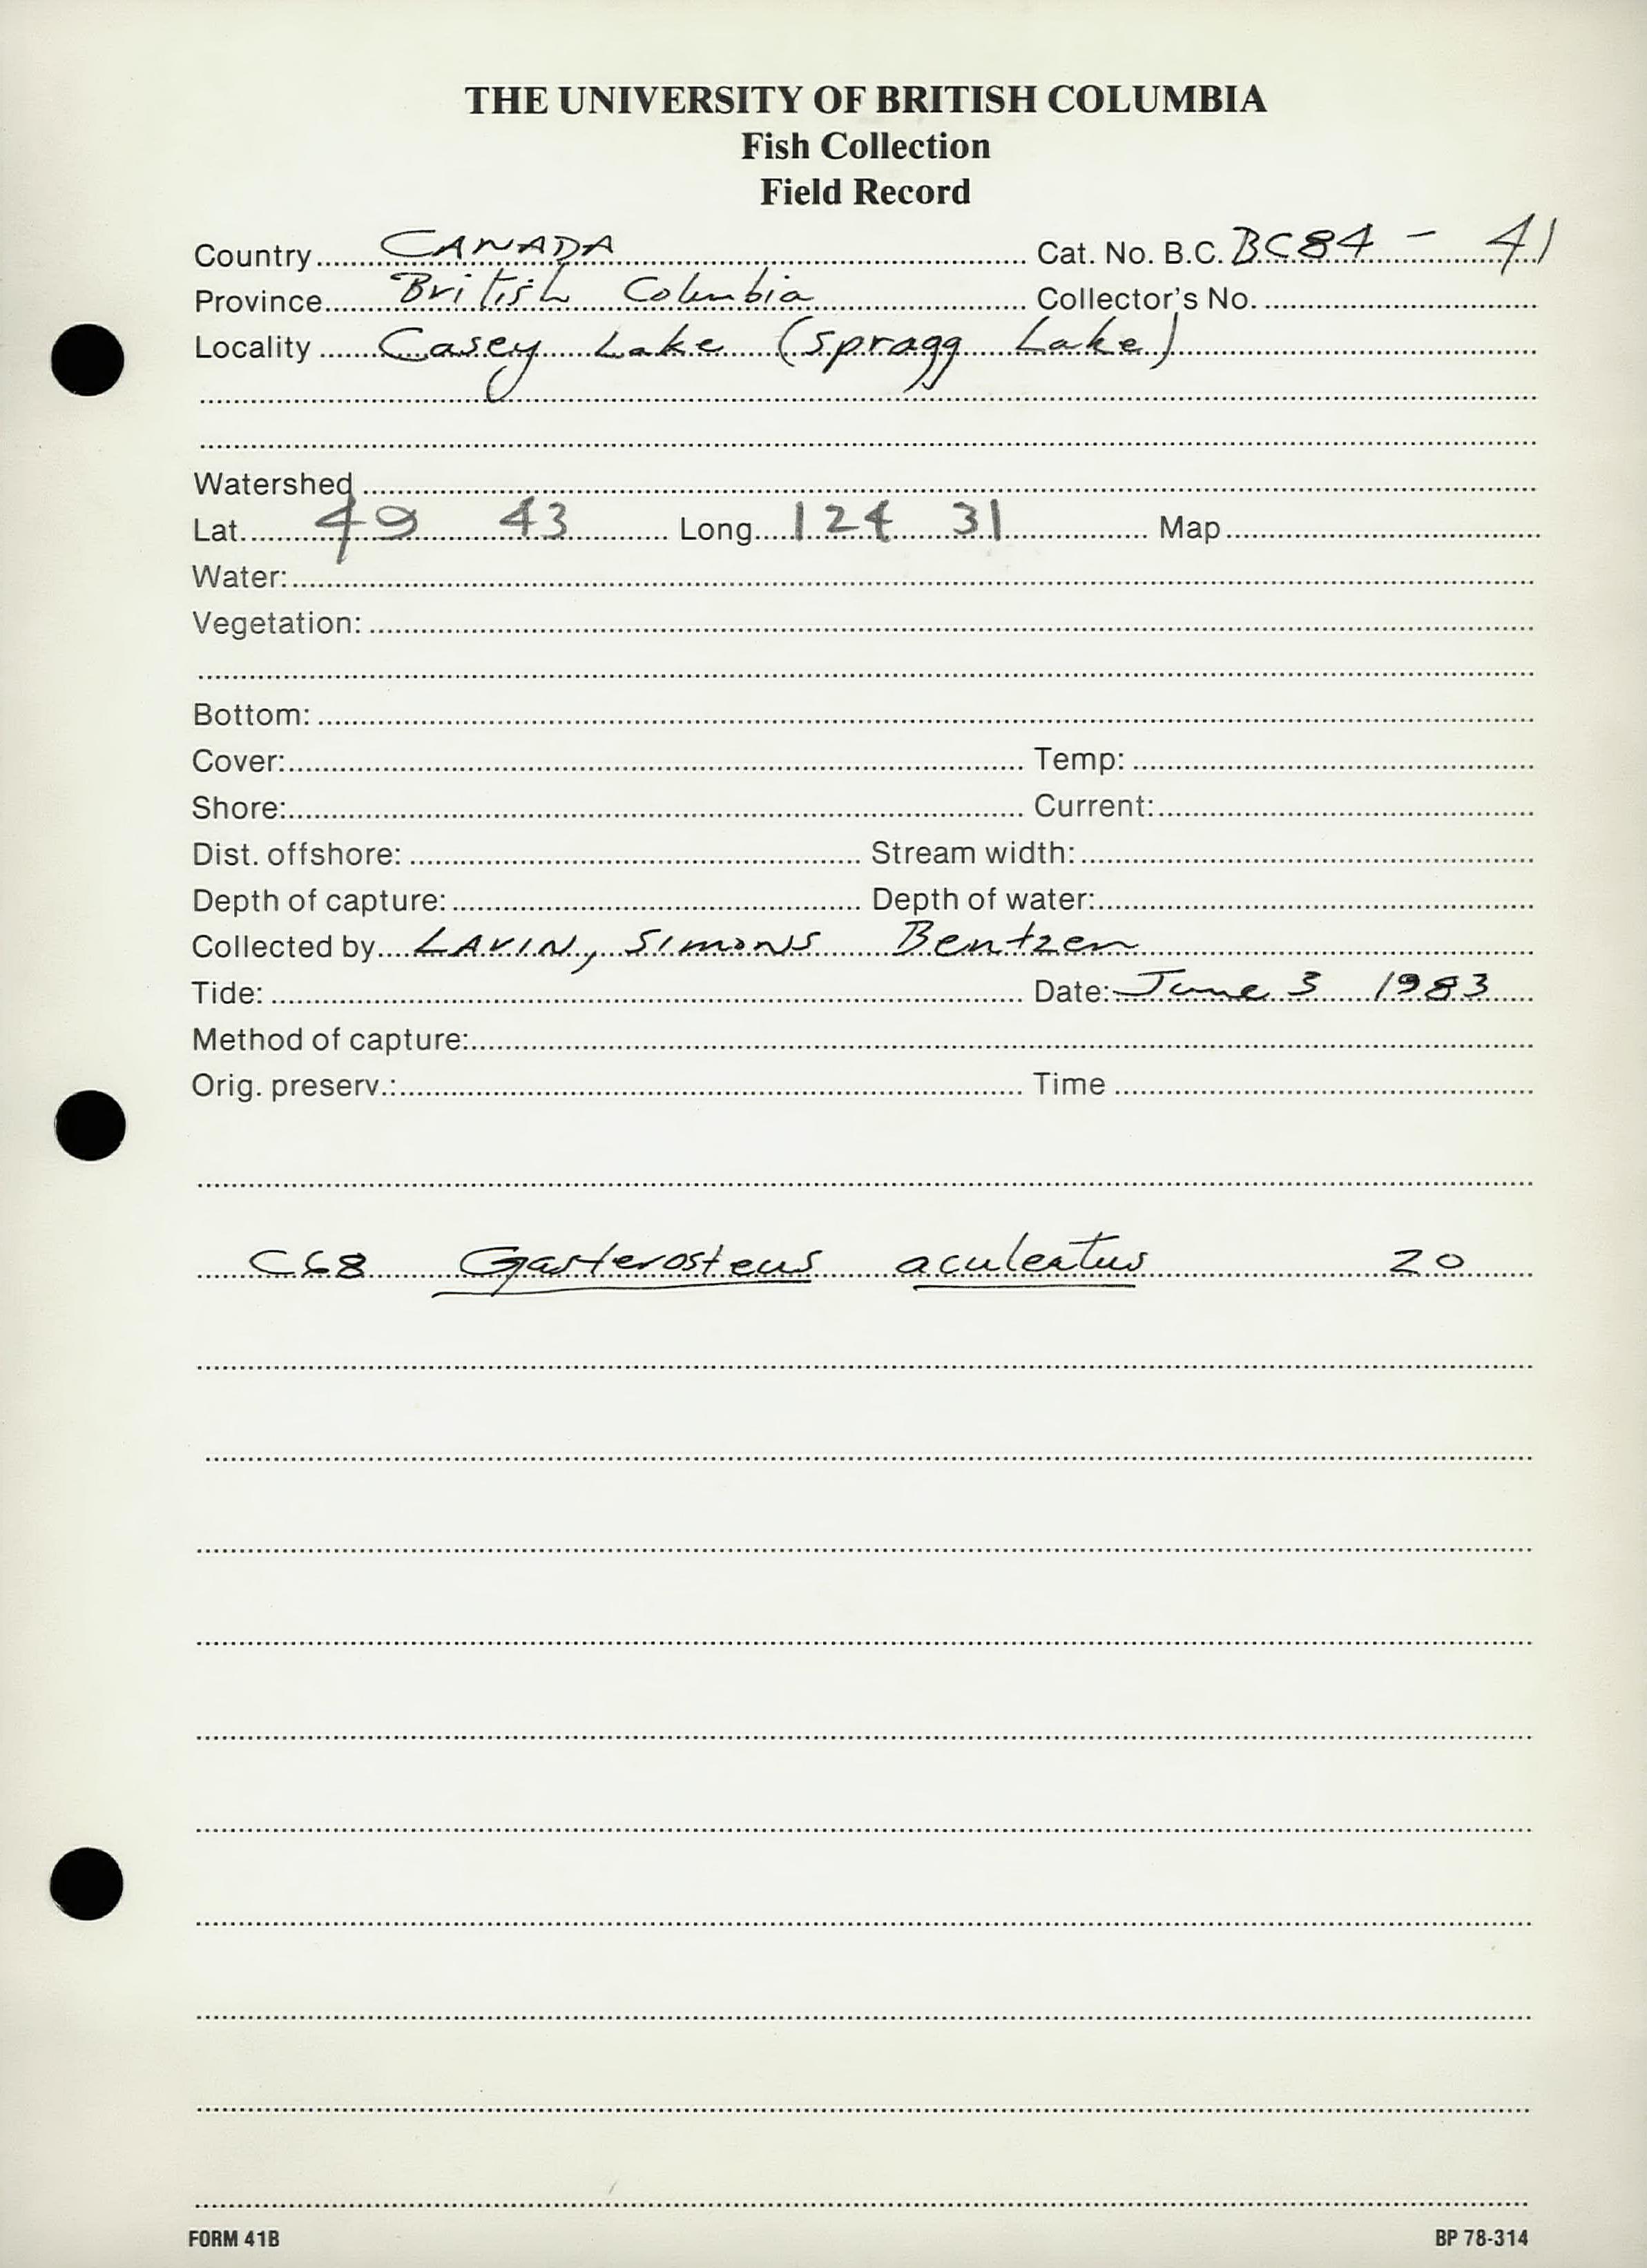 THE UNIVERSITY OF BRITISH COLUMBIA
Fish Collection
Field Record
Country CANADA Cat. No. B.C. BC84 - 41
Province British Columbia Collector's No.
Locality Casey Lake (Spragg Lake)
Watershed
Lat. 49 43 Long 124 31 Map
Water:
Vegetation:
Bottom:
Cover: Temp:
Shore: Current:
Dist. offshore: Stream width:
Depth of capture: Depth of water:
Collected by LAVIN, SIMONS Bentzen
Tide: Date: June 3 1983
Method of capture:
Orig. preserv.: Time
C68 Gasterosteus aculeatus 20
FORM 41B BP 78-314